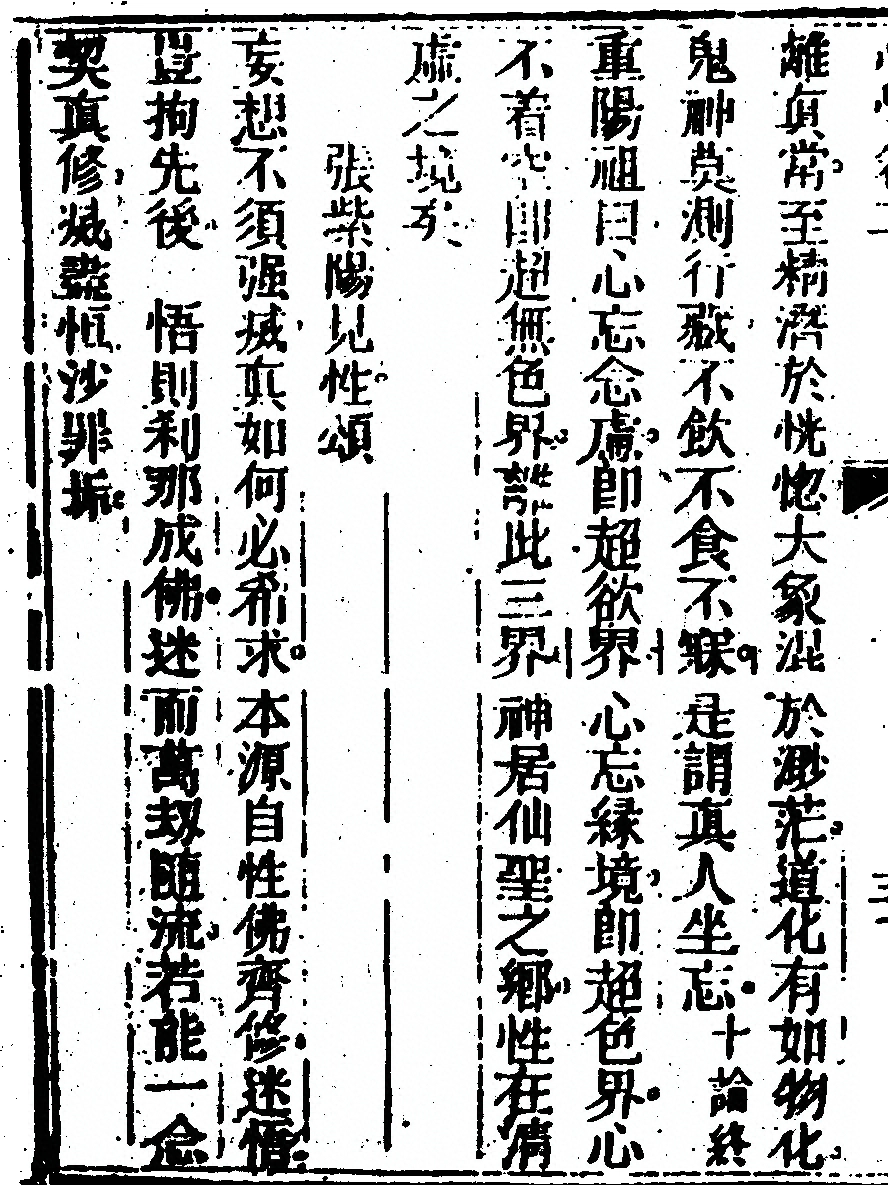 離真常至精濟於恍惚大象混於渺茫道化有如物化
鬼神莫測行藏不飲不食不寐是謂真人坐忘十論終
重陽祖曰心忘念慮即超欲界心忘縁境即超色界心
不着空即超無色界離此三界神居仙聖之鄉性在清
虛之境矣
張紫陽見性頌
妄想不須强滅真如何必希求本源自性佛齊修迷悟
豈拘先後悟則刹那成佛迷而萬劫隨流若能一念
契真修滅盡恒沙罪垢